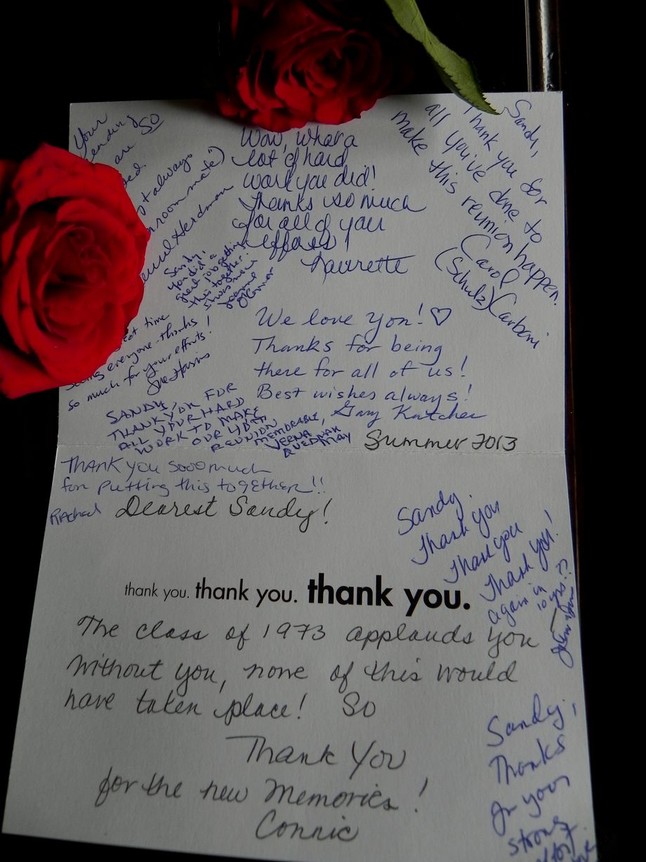 Your
SO
are
always
roommate)
Herdman
Wow, what a
lot of hard
work you did!
Thanks so much
for all of your
efforts!
Laurette
Sandy,
Thank you for
all you've done to
make this reunion happen.
Carol
(Schulz) Carboni
Sandy,
you did a
great job getting
this together.
time
seeing everyone. Thanks
so much for your efforts!
Sue Harris
We love you! ♡
Thanks for being
there for all of us!
Best wishes always!
Gary Kutcher
SANDY,
THANK YOU FOR
ALL YOUR HARD
WORK TO MAKE
OUR 40TH
REUNION
MEMORABLE,
VERNA
MAY
Summer 2013
THANK YOU sooo much
for putting this together!!
Rachael
Dearest Sandy!
Sandy,
Thank you
Thank you
Thank you!
again in
10 yrs??
thank you. thank you. thank you.
The class of 1973 applauds you
Without you, none of this would
have taken place! So
Thank You
for the new Memories!
Connie
Sandy,
Thanks
for your
strong